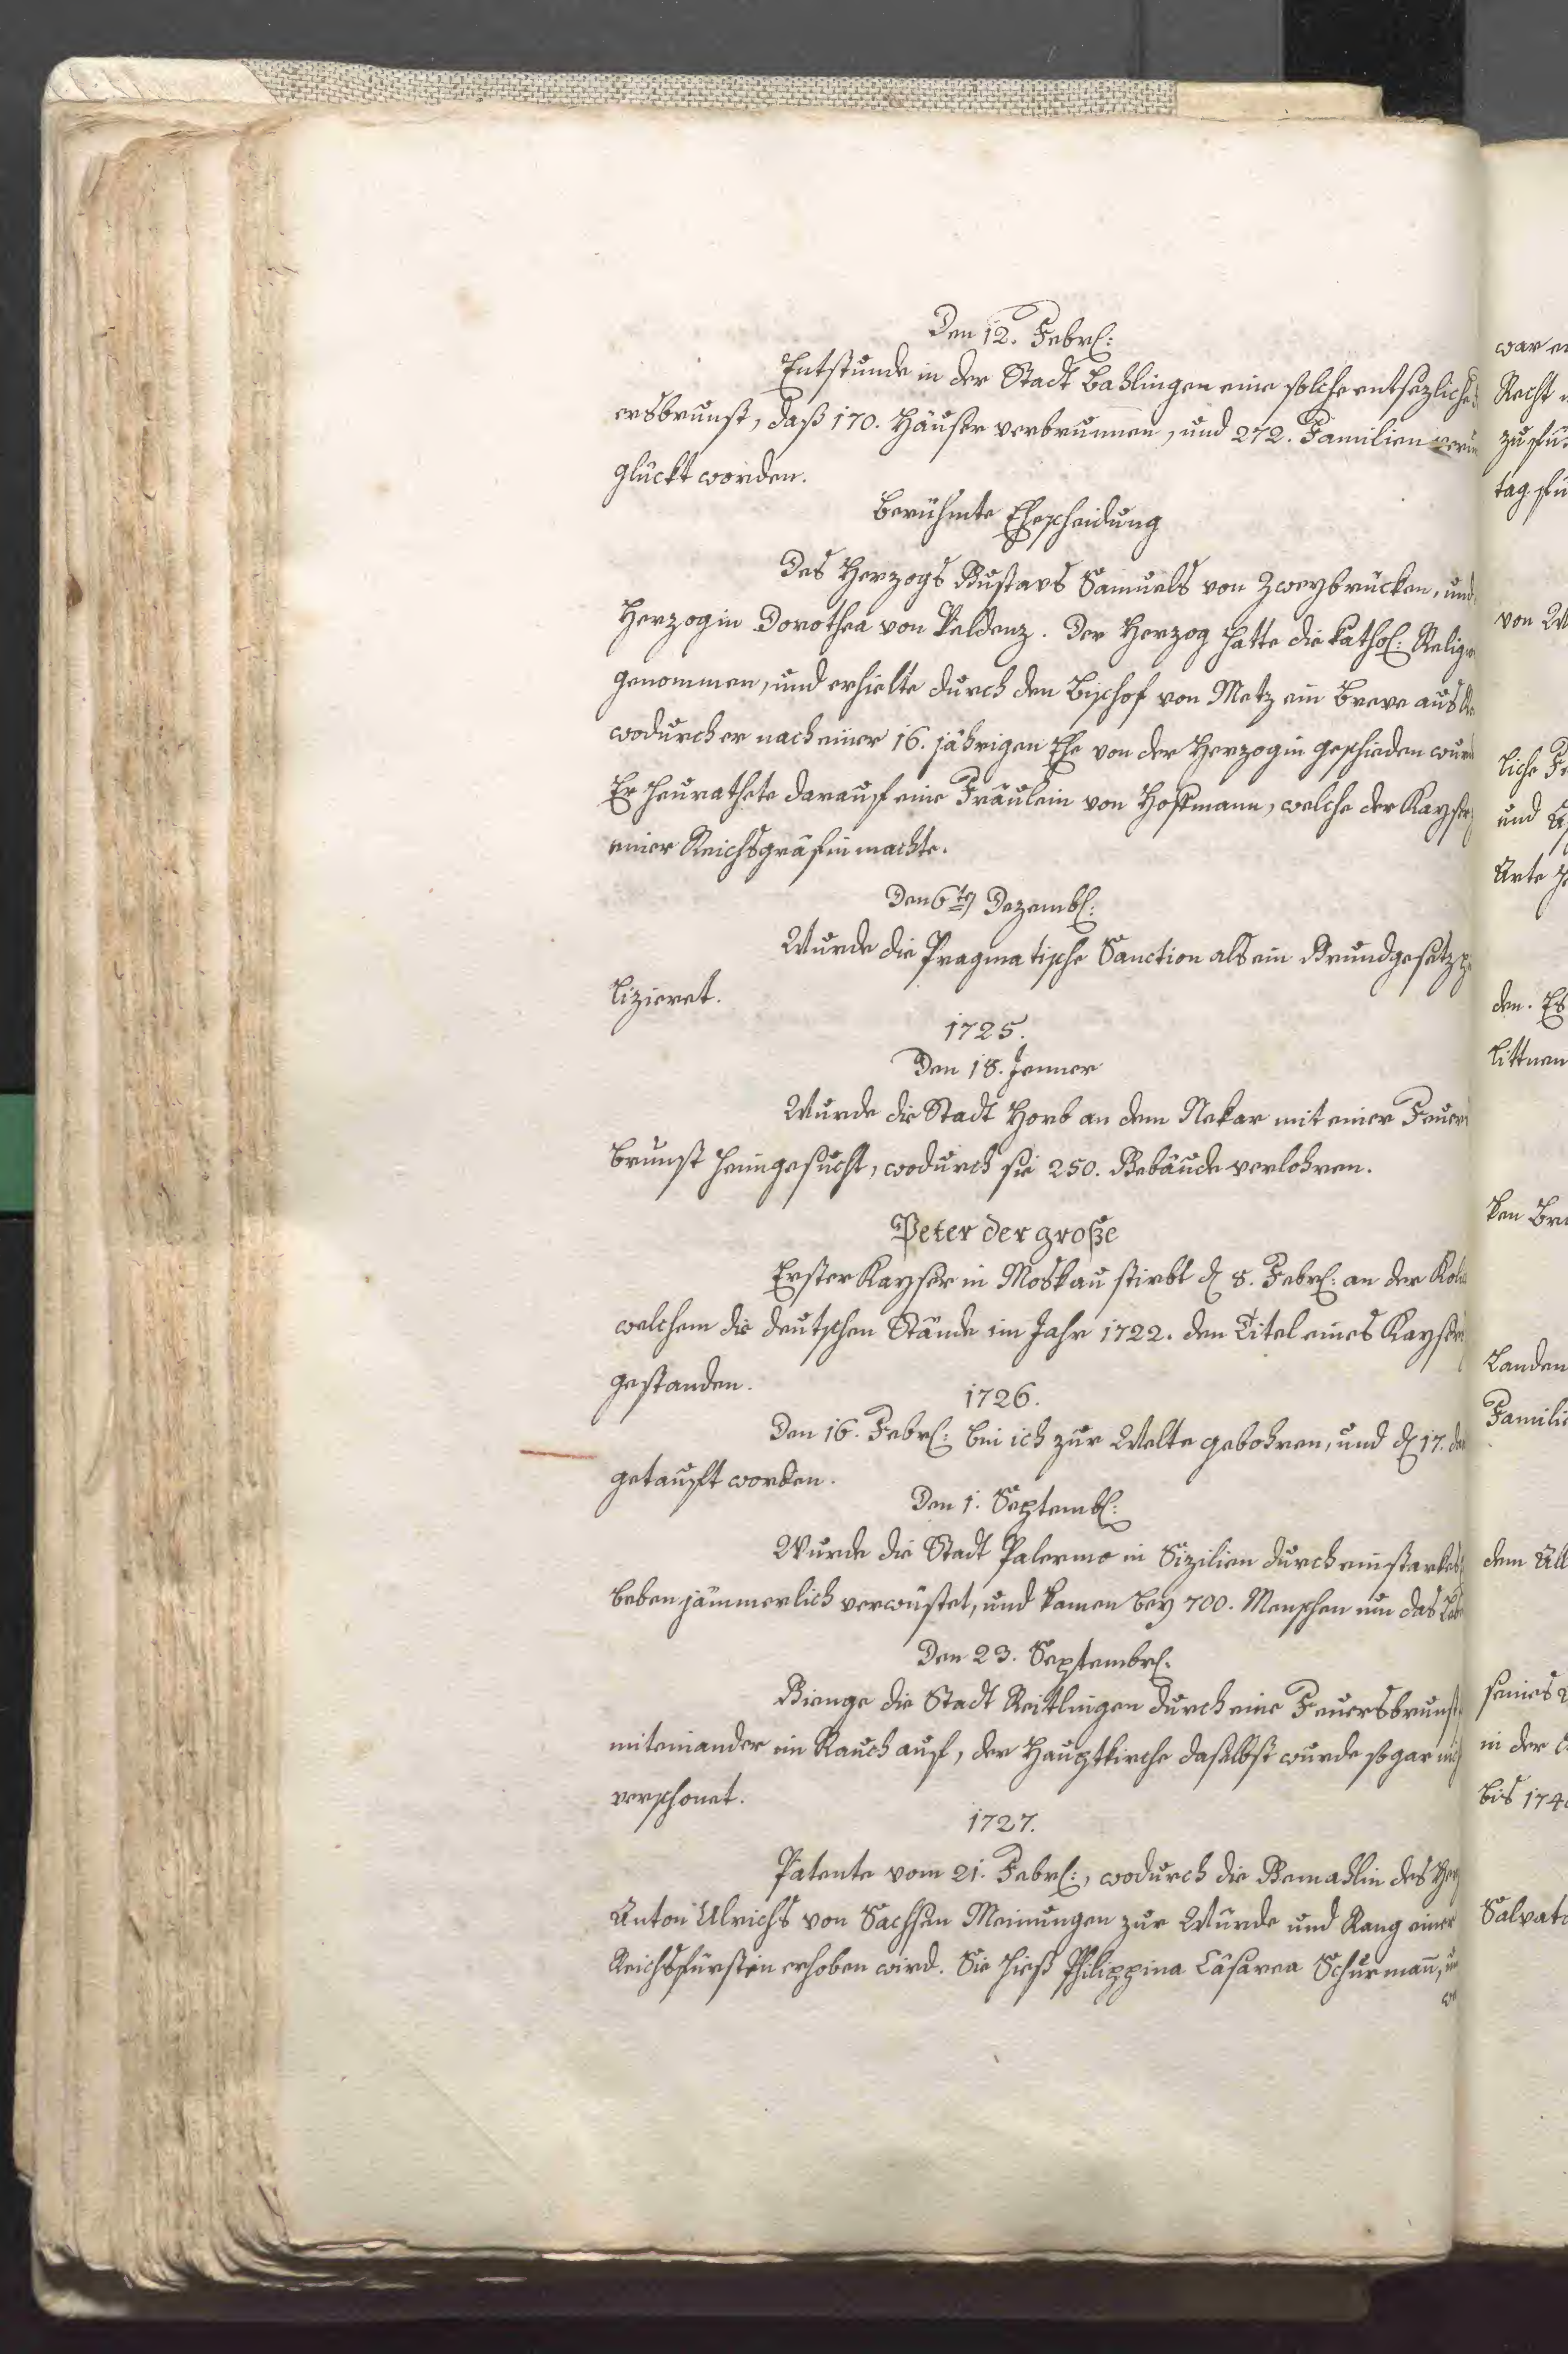 Den 12. Febrl:
Entstunde in der Stadt Bahlingen eine solche entsezliche
ersbrunst, daß 170. Häuser verbrunnen, und 272. Familien verun
glückt worden.
Berühmte Ehescheidung
Des Herzogs Gustavs Samuels von Zweybrücken, und
Herzogin Dorothea von Veldenz. Der Herzog hatte die kathol: Relig
genommen, und erhielte durch den Bischof von Metz ein Breve aus
wodurch er nach einer 16. jährigen Ehe von der Herzogin geschieden wurd
Er heurathete darauf eine Fräulein von Hoffmann, welche der Kayser
einer Reichsgräfin machte.
Den 6ten Dezembl:
Wurde die Pragmatische Sanction als ein Grundgesetz
lizieret.
1725.
Den 18. Jenner
Wurde die Stadt Horb an dem Nekar mit einer Feuers
brunst heimgesucht, wodurch sie 250. Gebäude verlohren.
Peter der große
Erster Kayser in Moskau stirbt d 8. Febrl: an der Kolik
welchem die deutschen Stände im Jahr 1722. den Titel eines Kaysers
gestanden.
1726.
Den 16. Febrl: bin ich zur Welte gebohren, und d 17. den
getauft worden.
Den 1. Septembl:
Wurde die Stadt Palermo in Sizilien durch ein starkes
beben jämmerlich verwüstet, und kamen bey 700. Menschen um das Leb
Den 23. Septembrl.
Gienge die Stadt Reitlingen durch eine Feuersbrunst
miteinander im Rauch auf, der Hauptkirche daselbst wurde sogar nich
verschonet.
1727.
Patente vom 21. Febrl:, wodurch die Gemahlin des Her
Anton Ulrichs von Sachsen Meinungen zur Würde und Rang einer
Reichsfürstin erhoben wird. Sie hieß Philippina Cäsarea Schurmann,
war
Recht
zu
tag
von
liche
und
Arte
den. Es
littnen
ken
Landen
Famili
dem
seines
in der
bis 174
Salvat